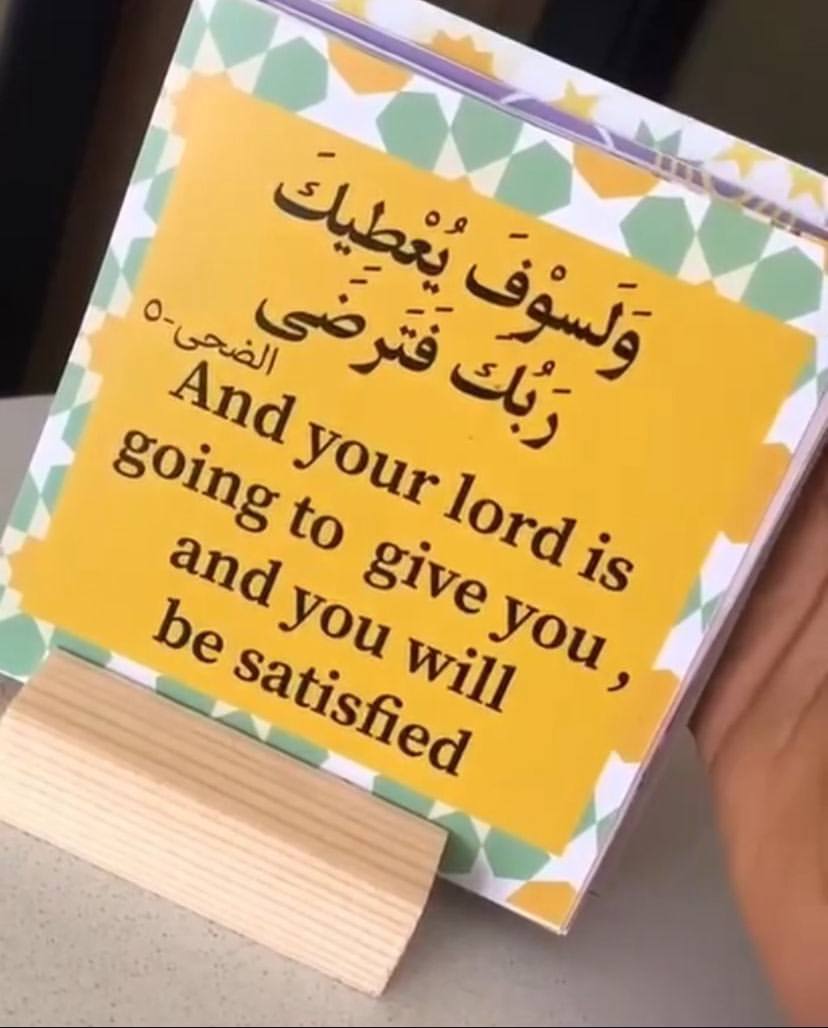 وَلَسوْفَ يُعْطِيكَ
رَبُكَ فَتَرضَى
الضحى-٥
And your lord is
going to give you ,
and you will
be satisfied